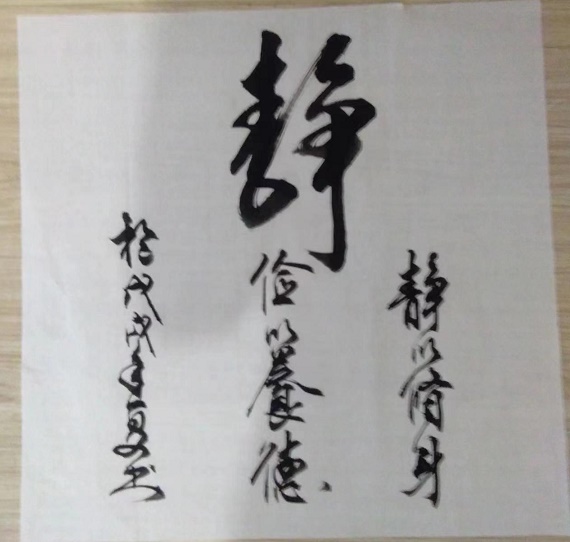 静
静以修身
俭以养德
於戊戌年夏书